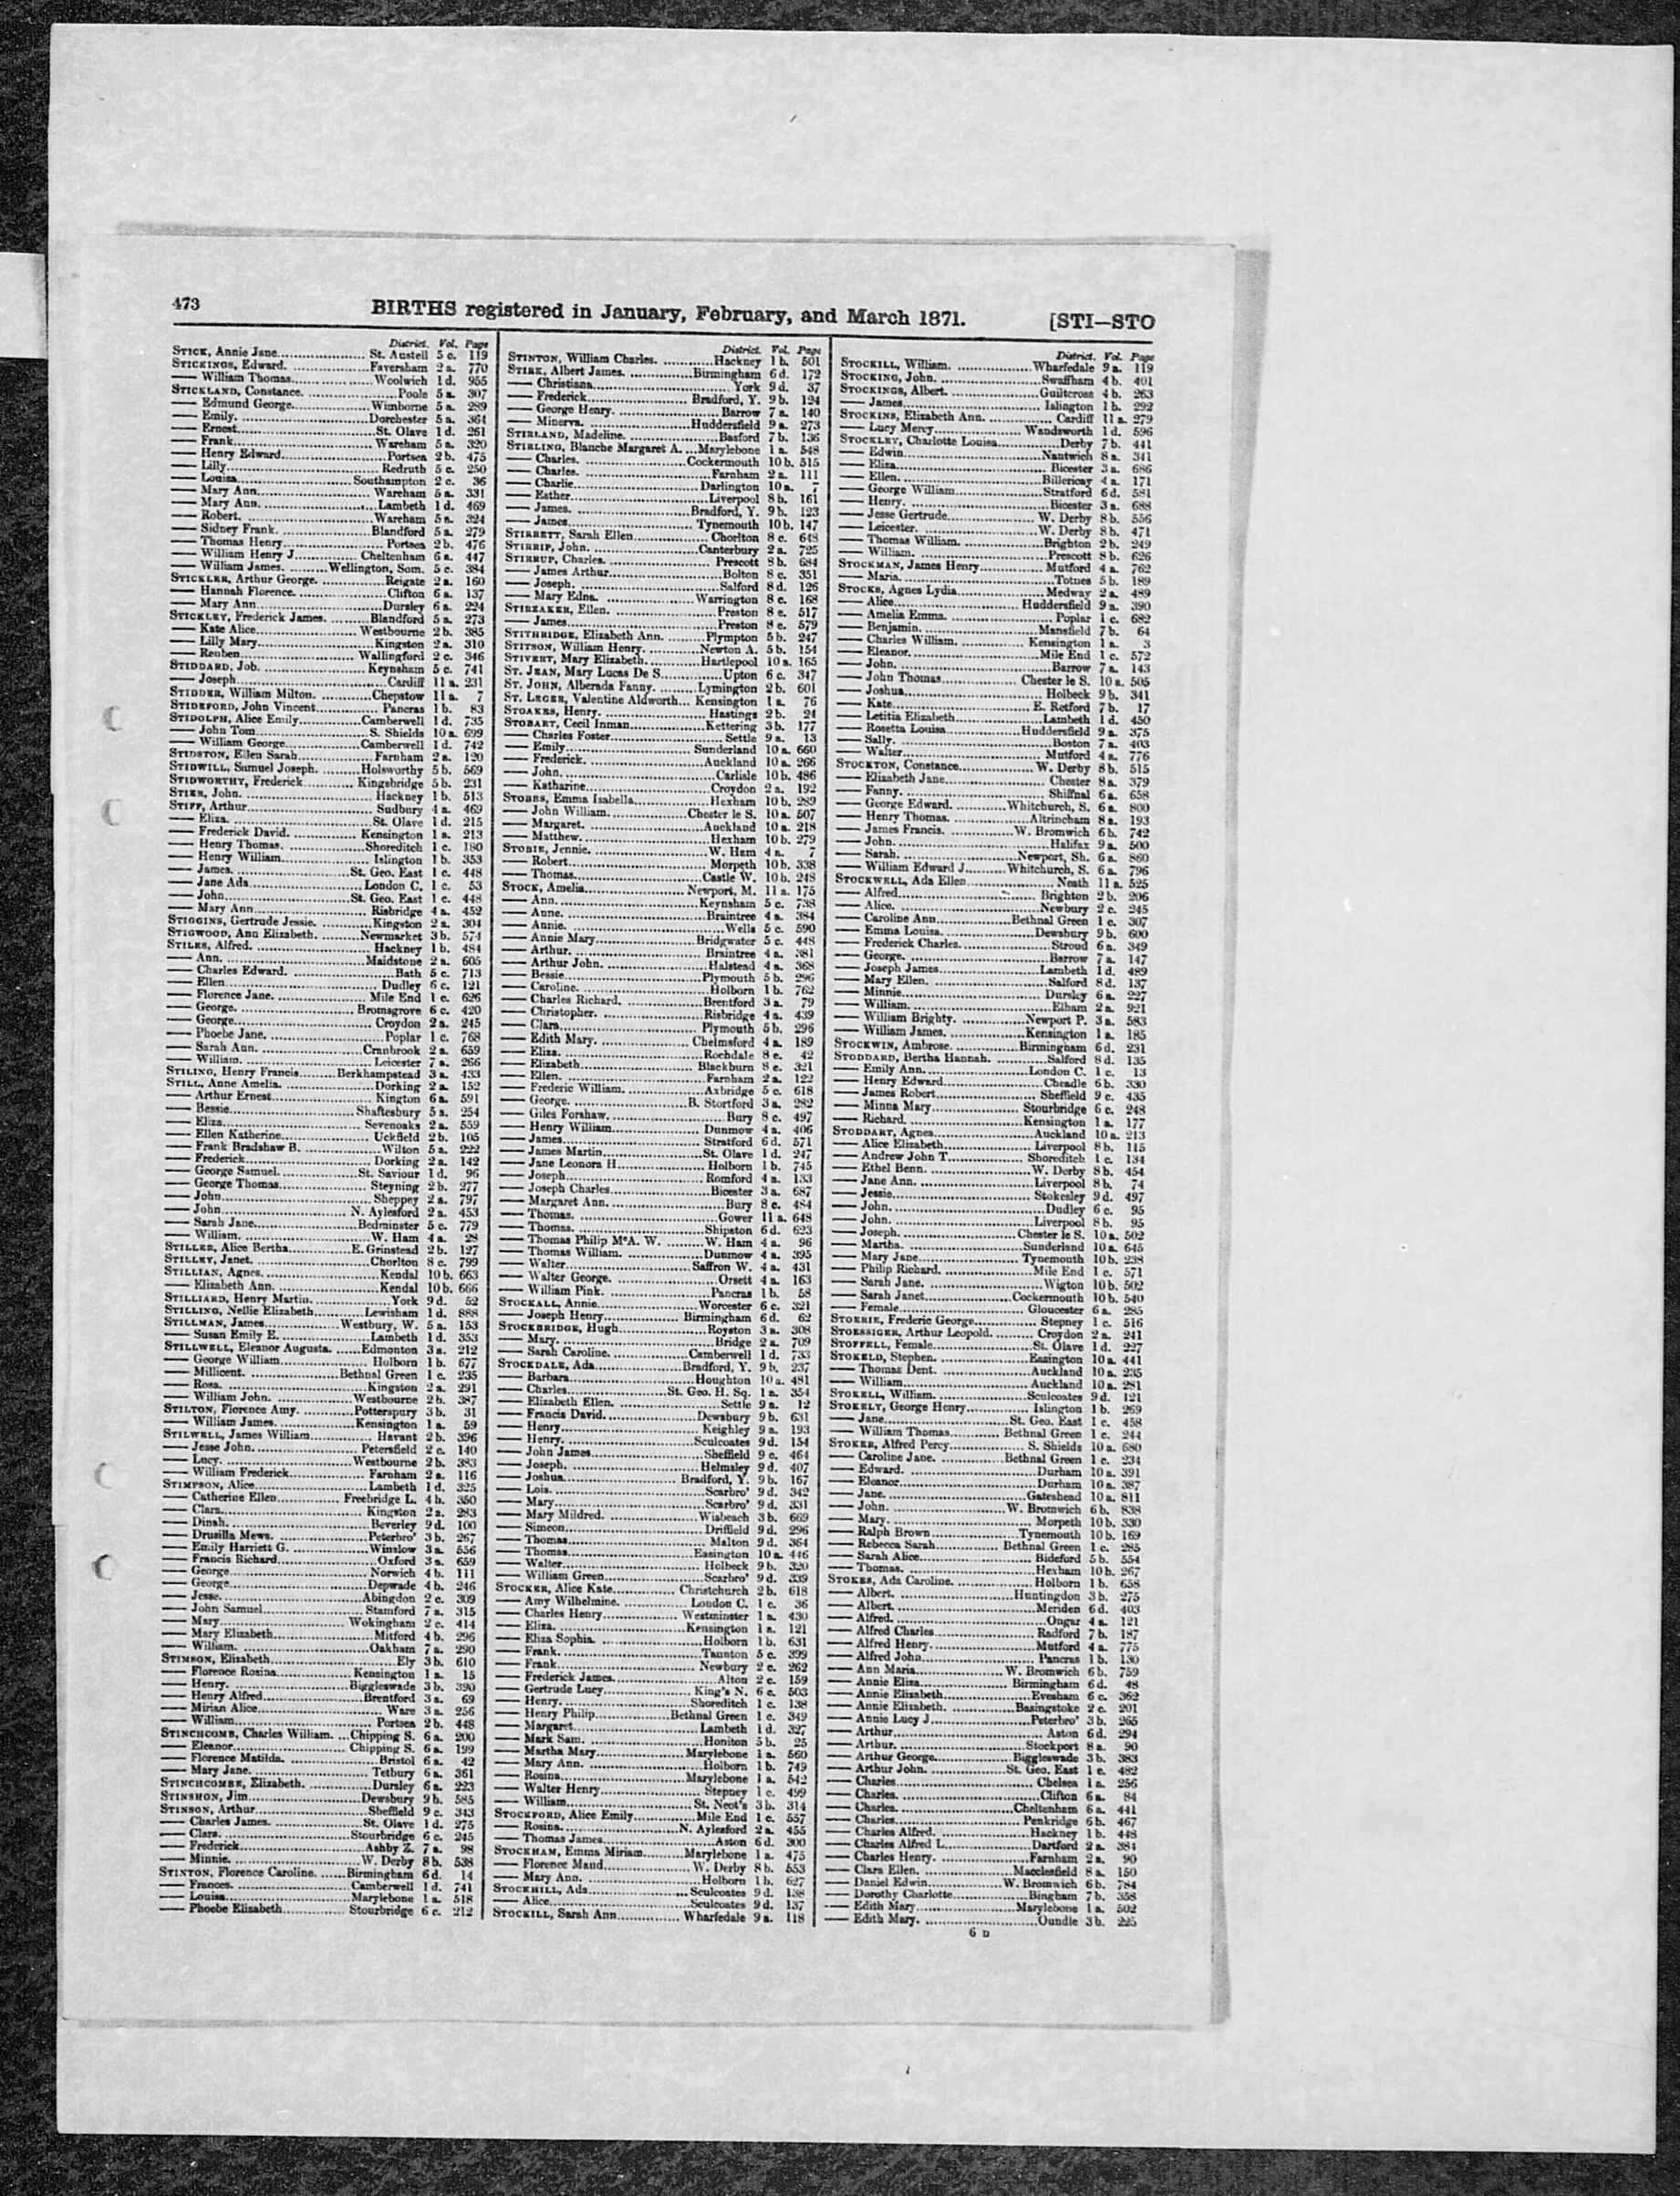 473
BIRTHS registered in January, February, and March 1871.
[STI—STO
District. Vol. Page
STICK, Annie Jane. St. Austell 5 c. 119
STICKINGS, Edward. Faversham 2 a. 770
—— William Thomas. Woolwich 1 d. 955
STICKLAND, Constance. Poole 5 a. 307
—— Edmund George. Wimborne 5 a. 289
—— Emily. Dorchester 5 a. 364
—— Ernest. St. Olave 1 d. 261
—— Frank. Wareham 5 a. 320
—— Henry Edward. Portsea 2 b. 475
—— Lilly. Redruth 5 c. 250
—— Louisa. Southampton 2 c. 36
—— Mary Ann. Wareham 5 a. 331
—— Mary Ann. Lambeth 1 d. 469
—— Robert. Wareham 5 a. 324
—— Sidney Frank. Blandford 5 a. 279
—— Thomas Henry. Portsea 2 b. 476
—— William Henry J. Cheltenham 6 a. 447
—— William James. Wellington, Som. 5 c. 384
STICKLER, Arthur George. Reigate 2 a. 160
—— Hannah Florence. Clifton 6 a. 137
—— Mary Ann. Dursley 6 a. 224
STICKLEY, Frederick James. Blandford 5 a. 273
—— Kate Alice. Westbourne 2 b. 385
—— Lilly Mary. Kingston 2 a. 310
—— Reuben. Wallingford 2 c. 346
STIDDARD, Job. Keynsham 5 c. 741
—— Joseph. Cardiff 11 a. 231
STIDDER, William Milton. Chepstow 11 a. 7
STIDEFORD, John Vincent. Pancras 1 b. 83
STIDOLPH, Alice Emily. Camberwell 1 d. 735
—— John Tom. S. Shields 10 a. 699
—— William George. Camberwell 1 d. 742
STIDSTON, Ellen Sarah. Farnham 2 a. 120
STIDWILL, Samuel Joseph. Holsworthy 5 b. 569
STIDWORTHY, Frederick. Kingsbridge 5 b. 231
STIER, John. Hackney 1 b. 513
STIFF, Arthur. Sudbury 4 a. 469
—— Eliza. St. Olave 1 d. 215
—— Frederick David. Kensington 1 a. 213
—— Henry Thomas. Shoreditch 1 c. 180
—— Henry William. Islington 1 b. 353
—— James. St. Geo. East 1 c. 448
—— Jane Ada. London C. 1 c. 53
—— John. St. Geo. East 1 c. 448
—— Mary Ann. Risbridge 4 a. 452
STIGGINS, Gertrude Jessie. Kingston 2 a. 304
STIGWOOD, Ann Elizabeth. Newmarket 3 b. 574
STILES, Alfred. Hackney 1 b. 484
—— Ann. Maidstone 2 a. 605
—— Charles Edward. Bath 5 c. 713
—— Ellen. Dudley 6 c. 121
—— Florence Jane. Mile End 1 c. 626
—— George. Bromsgrove 6 c. 420
—— George. Croydon 2 a. 245
—— Phoebe Jane. Poplar 1 c. 768
—— Sarah Ann. Cranbrook 2 a. 659
—— William. Leicester 7 a. 266
STILING, Henry Francis. Berkhampstead 3 a. 433
STILL, Anne Amelia. Dorking 2 a. 152
—— Arthur Ernest. Kington 6 a. 591
—— Bessie. Shaftesbury 5 a. 254
—— Eliza. Sevenoaks 2 a. 559
—— Ellen Katherine. Uckfield 2 b. 105
—— Frank Bradshaw B. Wilton 5 a. 222
—— Frederick. Dorking 2 a. 142
—— George Samuel. St. Saviour 1 d. 96
—— George Thomas. Steyning 2 b. 277
—— John. Sheppey 2 a. 797
—— John. N. Aylesford 2 a. 453
—— Sarah Jane. Bedminster 5 c. 779
—— William. W. Ham 4 a. 28
STILLER, Alice Bertha. E. Grinstead 2 b. 127
STILLEY, Janet. Chorlton 8 c. 799
STILLIAN, Agnes. Kendal 10 b. 663
—— Elizabeth Ann. Kendal 10 b. 666
STILLIARD, Henry Martin. York 9 d. 52
STILLING, Nellie Elizabeth. Lewisham 1 d. 888
STILLMAN, James. Westbury, W. 5 a. 153
—— Susan Emily E. Lambeth 1 d. 353
STILLWELL, Eleanor Augusta. Edmonton 3 a. 212
—— George William. Holborn 1 b. 677
—— Millicent. Bethnal Green 1 c. 235
—— Rosa. Kingston 2 a. 291
—— William John. Westbourne 2 b. 387
STILTON, Florence Amy. Potterspury 3 b. 31
—— William James. Kensington 1 a. 59
STILWELL, James William. Havant 2 b. 396
—— Jesse John. Petersfield 2 c. 140
—— Lucy. Westbourne 2 b. 383
—— William Frederick. Farnham 2 a. 116
STIMPSON, Alice. Lambeth 1 d. 325
—— Catherine Ellen. Freebridge L. 4 b. 350
—— Clara. Kingston 2 a. 283
—— Dinah. Beverley 9 d. 100
—— Drusilla Mews. Peterbro' 3 b. 267
—— Emily Harriett G. Winslow 3 a. 556
—— Francis Richard. Oxford 3 a. 659
—— George. Norwich 4 b. 111
—— George. Depwade 4 b. 246
—— Jesse. Abingdon 2 c. 309
—— John Samuel. Stamford 7 a. 315
—— Mary. Wokingham 2 c. 414
—— Mary Elizabeth. Mitford 4 b. 296
—— William. Oakham 7 a. 290
STIMSON, Elizabeth. Ely 3 b. 610
—— Florence Rosina. Kensington 1 a. 15
—— Henry. Biggleswade 3 b. 390
—— Henry Alfred. Brentford 3 a. 69
—— Mirian Alice. Ware 3 a. 256
—— William. Portsea 2 b. 448
STINCHCOMB, Charles William. Chipping S. 6 a. 200
—— Eleanor. Chipping S. 6 a. 199
—— Florence Matilda. Bristol 6 a. 42
—— Mary Jane. Tetbury 6 a. 361
STINCHCOMBE, Elizabeth. Dursley 6 a. 223
STINSHON, Jim. Dewsbury 9 b. 585
STINSON, Arthur. Sheffield 9 c. 343
—— Charles James. St. Olave 1 d. 275
—— Clara. Stourbridge 6 c. 245
—— Frederick. Ashby Z. 7 a. 98
—— Minnie. W. Derby 8 b. 538
STINTON, Florence Caroline. Birmingham 6 d. 14
—— Frances. Camberwell 1 d. 741
—— Louisa. Marylebone 1 a. 518
—— Phoebe Elizabeth. Stourbridge 6 c. 212
District. Vol. Page
STINTON, William Charles. Hackney 1 b. 501
STIRK, Albert James. Birmingham 6 d. 172
—— Christiana. York 9 d. 37
—— Frederick. Bradford, Y. 9 b. 124
—— George Henry. Barrow 7 a. 140
—— Minerva. Huddersfield 9 a. 273
STIRLAND, Madeline. Basford 7 b. 136
STIRLING, Blanche Margaret A. Marylebone 1 a. 548
—— Charles. Cockermouth 10 b. 515
—— Charles. Farnham 2 a. 111
—— Charlie. Darlington 10 a. 7
—— Esther. Liverpool 8 b. 161
—— James. Bradford, Y. 9 b. 123
—— James. Tynemouth 10 b. 147
STIRRETT, Sarah Ellen. Chorlton 8 c. 648
STIRRIP, John. Canterbury 2 a. 725
STIRRUP, Charles. Prescott 8 b. 684
—— James Arthur. Bolton 8 c. 351
—— Joseph. Salford 8 d. 126
—— Mary Edna. Warrington 8 c. 168
STIRZAKER, Ellen. Preston 8 e. 517
—— James. Preston 8 e. 579
STITHRIDGE, Elizabeth Ann. Plympton 5 b. 247
STITSON, William Henry. Newton A. 5 b. 154
STIVERT, Mary Elizabeth. Hartlepool 10 a. 165
ST. JEAN, Mary Lucas De S. Upton 6 c. 347
ST. JOHN, Alberada Fanny. Lymington 2 b. 601
ST. LEGER, Valentine Aldworth. Kensington 1 a. 76
STOAKES, Henry. Hastings 2 b. 24
STOBART, Cecil Inman. Kettering 3 b. 177
—— Charles Foster. Settle 9 a. 13
—— Emily. Sunderland 10 a. 660
—— Frederick. Auckland 10 a. 266
—— John. Carlisle 10 b. 486
—— Katharine. Croydon 2 a. 192
STOBBS, Emma Isabella. Hexham 10 b. 289
—— John William. Chester le S. 10 a. 507
—— Margaret. Auckland 10 a. 218
—— Matthew. Hexham 10 b. 279
STOBIE, Jennie. W. Ham 4 a. 7
—— Robert. Morpeth 10 b. 338
—— Thomas. Castle W. 10 b. 248
STOCK, Amelia. Newport, M. 11 a. 175
—— Ann. Keynsham 5 c. 738
—— Anne. Braintree 4 a. 384
—— Annie. Wells 5 c. 590
—— Annie Mary. Bridgwater 5 c. 448
—— Arthur. Braintree 4 a. 381
—— Arthur John. Halstead 4 a. 368
—— Bessie. Plymouth 5 b. 296
—— Caroline. Holborn 1 b. 762
—— Charles Richard. Brentford 3 a. 79
—— Christopher. Risbridge 4 a. 439
—— Clara. Plymouth 5 b. 296
—— Edith Mary. Chelmsford 4 a. 189
—— Eliza. Rochdale 8 e. 42
—— Elizabeth. Blackburn 8 e. 321
—— Ellen. Farnham 2 a. 122
—— Frederic William. Axbridge 5 c. 618
—— George. B. Stortford 3 a. 282
—— Giles Forshaw. Bury 8 c. 497
—— Henry William. Dunmow 4 a. 406
—— James. Stratford 6 d. 571
—— James Martin. St. Olave 1 d. 247
—— Jane Leonora H. Holborn 1 b. 745
—— Joseph. Romford 4 a. 133
—— Joseph Charles. Bicester 3 a. 687
—— Margaret Ann. Bury 8 c. 484
—— Thomas. Gower 11 a. 648
—— Thomas. Shipston 6 d. 623
—— Thomas Philip McA. W. W. Ham 4 a. 96
—— Thomas William. Dunmow 4 a. 395
—— Walter. Saffron W. 4 a. 431
—— Walter George. Orsett 4 a. 163
—— William Pink. Pancras 1 b. 58
STOCKALL, Annie. Worcester 6 c. 321
—— Joseph Henry. Birmingham 6 d. 62
STOCKBRIDGE, Hugh. Royston 3 a. 308
—— Mary. Bridge 2 a. 709
—— Sarah Caroline. Camberwell 1 d. 733
STOCKDALE, Ada. Bradford, Y. 9 b. 237
—— Barbara. Houghton 10 a. 481
—— Charles. St. Geo. H. Sq. 1 a. 354
—— Elizabeth Ellen. Settle 9 a. 12
—— Francis David. Dewsbury 9 b. 631
—— Henry. Keighley 9 a. 193
—— Henry. Sculcoates 9 d. 154
—— John James. Sheffield 9 c. 464
—— Joseph. Helmsley 9 d. 407
—— Joshua. Bradford, Y. 9 b. 167
—— Lois. Scarbro' 9 d. 342
—— Mary. Scarbro' 9 d. 331
—— Mary Mildred. Wisbeach 3 b. 669
—— Simeon. Driffield 9 d. 296
—— Thomas. Malton 9 d. 364
—— Thomas. Easington 10 a. 446
—— Walter. Holbeck 9 b. 320
—— William Green. Scarbro' 9 d. 339
STOCKER, Alice Kate. Christchurch 2 b. 618
—— Amy Wilhelmine. London C. 1 c. 36
—— Charles Henry. Westminster 1 a. 430
—— Eliza. Kensington 1 a. 121
—— Eliza Sophia. Holborn 1 b. 631
—— Frank. Taunton 5 c. 399
—— Frank. Newbury 2 c. 262
—— Frederick James. Alton 2 c. 159
—— Gertrude Lucy. King's N. 6 c. 503
—— Henry. Shoreditch 1 c. 138
—— Henry Philip. Bethnal Green 1 c. 349
—— Margaret. Lambeth 1 d. 327
—— Mark Sam. Honiton 5 b. 25
—— Martha Mary. Marylebone 1 a. 560
—— Mary Ann. Holborn 1 b. 749
—— Rosina. Marylebone 1 a. 542
—— Walter Henry. Stepney 1 c. 499
—— William. St. Neot's 3 b. 314
STOCKFORD, Alice Emily. Mile End 1 c. 557
—— Rosina. N. Aylesford 2 a. 455
—— Thomas James. Aston 6 d. 300
STOCKHAM, Emma Miriam. Marylebone 1 a. 475
—— Florence Maud. W. Derby 8 b. 553
—— Mary Ann. Holborn 1 b. 627
STOCKHILL, Ada. Sculcoates 9 d. 138
—— Alice. Sculcoates 9 d. 137
STOCKILL, Sarah Ann. Wharfedale 9 a. 118
District. Vol. Page
STOCKILL, William. Wharfedale 9 a. 119
STOCKING, John. Swaffham 4 b. 401
STOCKINGS, Albert. Guiltcross 4 b. 263
—— James. Islington 1 b. 292
STOCKINS, Elizabeth Ann. Cardiff 11 a. 279
—— Lucy Mercy. Wandsworth 1 d. 596
STOCKLEY, Charlotte Louisa. Derby 7 b. 441
—— Edwin. Nantwich 8 a. 341
—— Eliza. Bicester 3 a. 686
—— Ellen. Billericay 4 a. 171
—— George William. Stratford 6 d. 581
—— Henry. Bicester 3 a. 688
—— Jesse Gertrude. W. Derby 8 b. 556
—— Leicester. W. Derby 8 b. 471
—— Thomas William. Brighton 2 b. 249
—— William. Prescott 8 b. 626
STOCKMAN, James Henry. Mutford 4 a. 762
—— Maria. Totnes 5 b. 189
STOCKS, Agnes Lydia. Medway 2 a. 489
—— Alice. Huddersfield 9 a. 390
—— Amelia Emma. Poplar 1 c. 682
—— Benjamin. Mansfield 7 b. 64
—— Charles William. Kensington 1 a. 3
—— Eleanor. Mile End 1 c. 572
—— John. Barrow 7 a. 143
—— John Thomas. Chester le S. 10 a. 505
—— Joshua. Holbeck 9 b. 341
—— Kate. E. Retford 7 b. 17
—— Letitia Elizabeth. Lambeth 1 d. 450
—— Rosetta Louisa. Huddersfield 9 a. 375
—— Sally. Boston 7 a. 403
—— Walter. Mutford 4 a. 776
STOCKTON, Constance. W. Derby 8 b. 515
—— Elizabeth Jane. Chester 8 a. 379
—— Fanny. Shiffnal 6 a. 658
—— George Edward. Whitchurch, S. 6 a. 800
—— Henry Thomas. Altrincham 8 a. 193
—— James Francis. W. Bromwich 6 b. 742
—— John. Halifax 9 a. 500
—— Sarah. Newport, Sh. 6 a. 860
—— William Edward J. Whitchurch, S. 6 a. 796
STOCKWELL, Ada Ellen. Neath 11 a. 525
—— Alfred. Brighton 2 b. 206
—— Alice. Newbury 2 c. 245
—— Caroline Ann. Bethnal Green 1 c. 307
—— Emma Louisa. Dewsbury 9 b. 600
—— Frederick Charles. Stroud 6 a. 349
—— George. Barrow 7 a. 147
—— Joseph James. Lambeth 1 d. 489
—— Mary Ellen. Salford 8 d. 137
—— Minnie. Dursley 6 a. 227
—— William. Elham 2 a. 921
—— William Brighty. Newport P. 3 a. 583
—— William James. Kensington 1 a. 185
STOCKWIN, Ambrose. Birmingham 6 d. 231
STODDARD, Bertha Hannah. Salford 8 d. 135
—— Emily Ann. London C. 1 c. 13
—— Henry Edward. Cheadle 6 b. 330
—— James Robert. Sheffield 9 c. 435
—— Minna Mary. Stourbridge 6 c. 248
—— Richard. Kensington 1 a. 177
STODDART, Agnes. Auckland 10 a. 213
—— Alice Elizabeth. Liverpool 8 b. 115
—— Andrew John T. Shoreditch 1 c. 134
—— Ethel Benn. W. Derby 8 b. 454
—— Jane Ann. Liverpool 8 b. 74
—— Jessie. Stokesley 9 d. 497
—— John. Dudley 6 c. 95
—— John. Liverpool 8 b. 95
—— Joseph. Chester le S. 10 a. 502
—— Martha. Sunderland 10 a. 645
—— Mary Jane. Tynemouth 10 b. 238
—— Philip Richard. Mile End 1 c. 571
—— Sarah Jane. Wigton 10 b. 502
—— Sarah Janet. Cockermouth 10 b. 540
—— Female. Gloucester 6 a. 285
STOERIE, Frederic George. Stepney 1 c. 516
STOESSIGER, Arthur Leopold. Croydon 2 a. 241
STOFFELL, Female. St. Olave 1 d. 227
STOKELD, Stephen. Easington 10 a. 441
—— Thomas Dent. Auckland 10 a. 235
—— William. Auckland 10 a. 281
STOKELL, William. Sculcoates 9 d. 121
STOKELY, George Henry. Islington 1 b. 269
—— Jane. St. Geo. East 1 c. 458
—— William Thomas. Bethnal Green 1 c. 244
STOKER, Alfred Percy. S. Shields 10 a. 680
—— Caroline Jane. Bethnal Green 1 c. 234
—— Edward. Durham 10 a. 391
—— Eleanor. Durham 10 a. 387
—— Jane. Gateshead 10 a. 811
—— John. W. Bromwich 6 b. 838
—— Mary. Morpeth 10 b. 330
—— Ralph Brown. Tynemouth 10 b. 169
—— Rebecca Sarah. Bethnal Green 1 c. 285
—— Sarah Alice. Bideford 5 b. 554
—— Thomas. Hexham 10 b. 267
STOKES, Ada Caroline. Holborn 1 b. 658
—— Albert. Huntingdon 3 b. 275
—— Albert. Meriden 6 d. 403
—— Alfred. Ongar 4 a. 121
—— Alfred Charles. Radford 7 b. 187
—— Alfred Henry. Mutford 4 a. 775
—— Alfred John. Pancras 1 b. 130
—— Ann Maria. W. Bromwich 6 b. 759
—— Annie Eliza. Birmingham 6 d. 48
—— Annie Elizabeth. Evesham 6 c. 362
—— Annie Elizabeth. Basingstoke 2 c. 201
—— Annie Lucy J. Peterbro' 3 b. 265
—— Arthur. Aston 6 d. 294
—— Arthur. Stockport 8 a. 90
—— Arthur George. Biggleswade 3 b. 383
—— Arthur John. St. Geo. East 1 c. 482
—— Charles. Chelsea 1 a. 256
—— Charles. Clifton 6 a. 84
—— Charles. Cheltenham 6 a. 441
—— Charles. Penkridge 6 b. 467
—— Charles Alfred. Hackney 1 b. 448
—— Charles Alfred L. Dartford 2 a. 384
—— Charles Henry. Farnham 2 a. 90
—— Clara Ellen. Macclesfield 8 a. 150
—— Daniel Edwin. W. Bromwich 6 b. 784
—— Dorothy Charlotte. Bingham 7 b. 358
—— Edith Mary. Marylebone 1 a. 502
—— Edith Mary. Oundle 3 b. 225
6 D